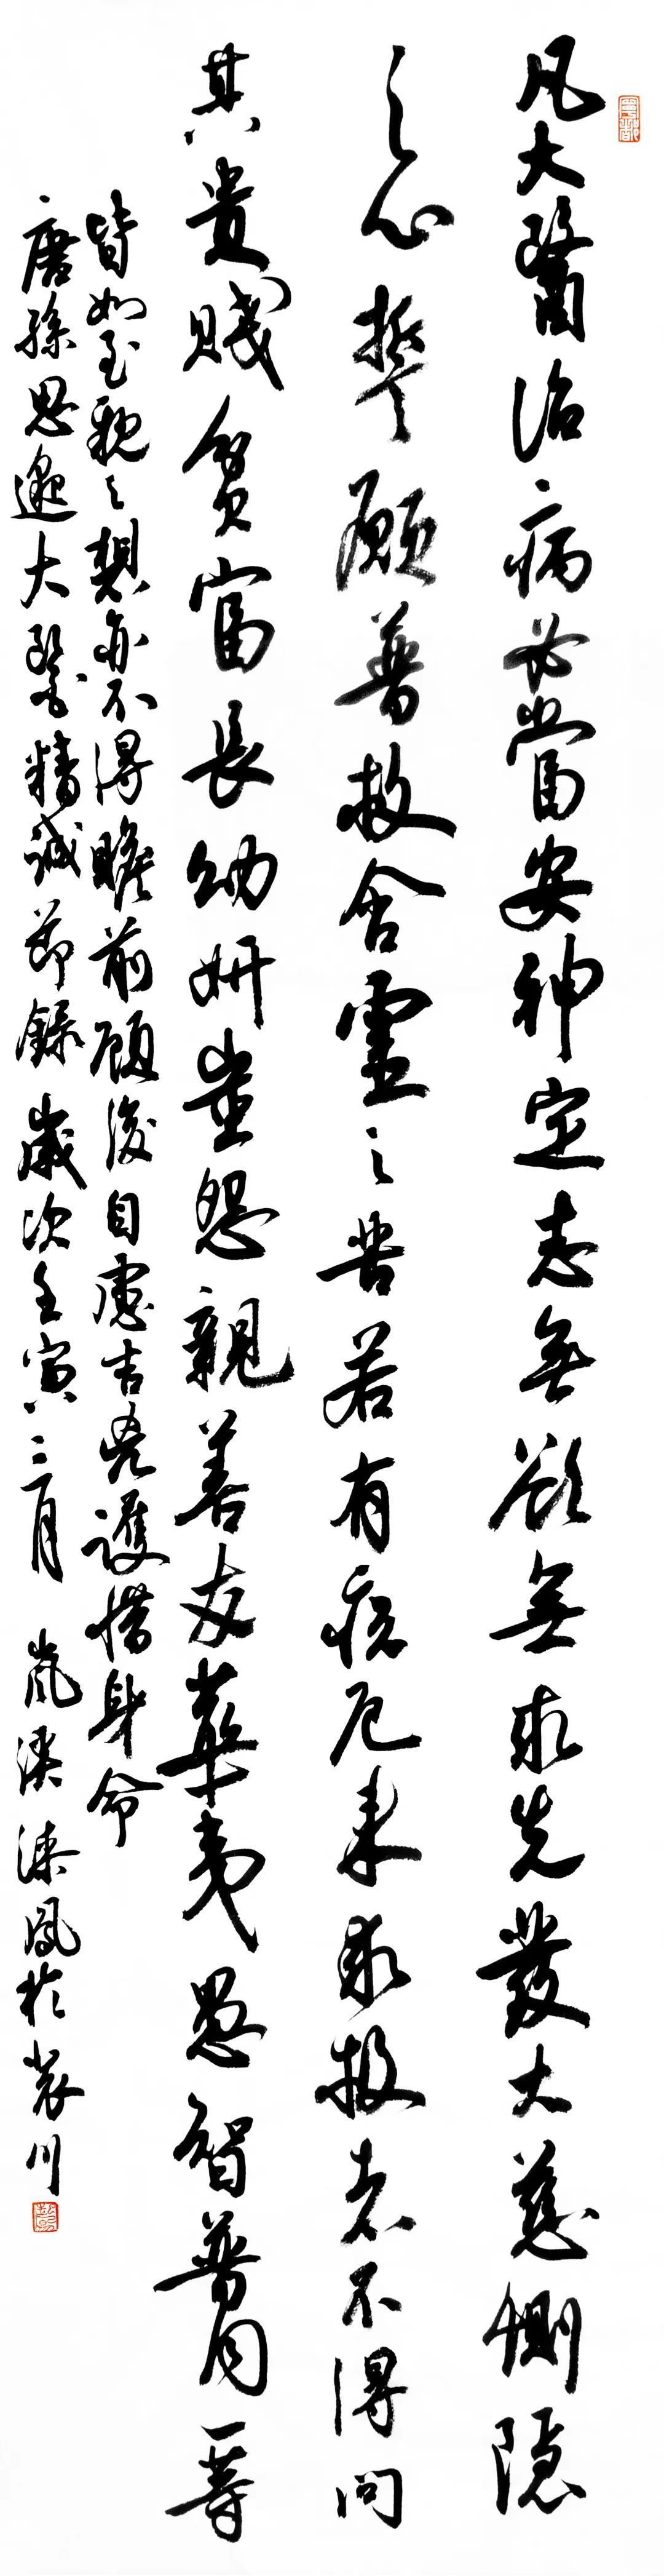 凡大醫治病必當安神定志無欲無求先發大慈惻隱
之心誓願普救含靈之苦若有疾厄來求救者不得問
其貴賤貧富長幼妍蚩怨親善友華夷愚智普同一等
皆如至親之想亦不得瞻前顧後自慮吉凶護惜身命
唐孫思邈大醫精誠節錄 歲次壬寅三月 嵐鳳於川